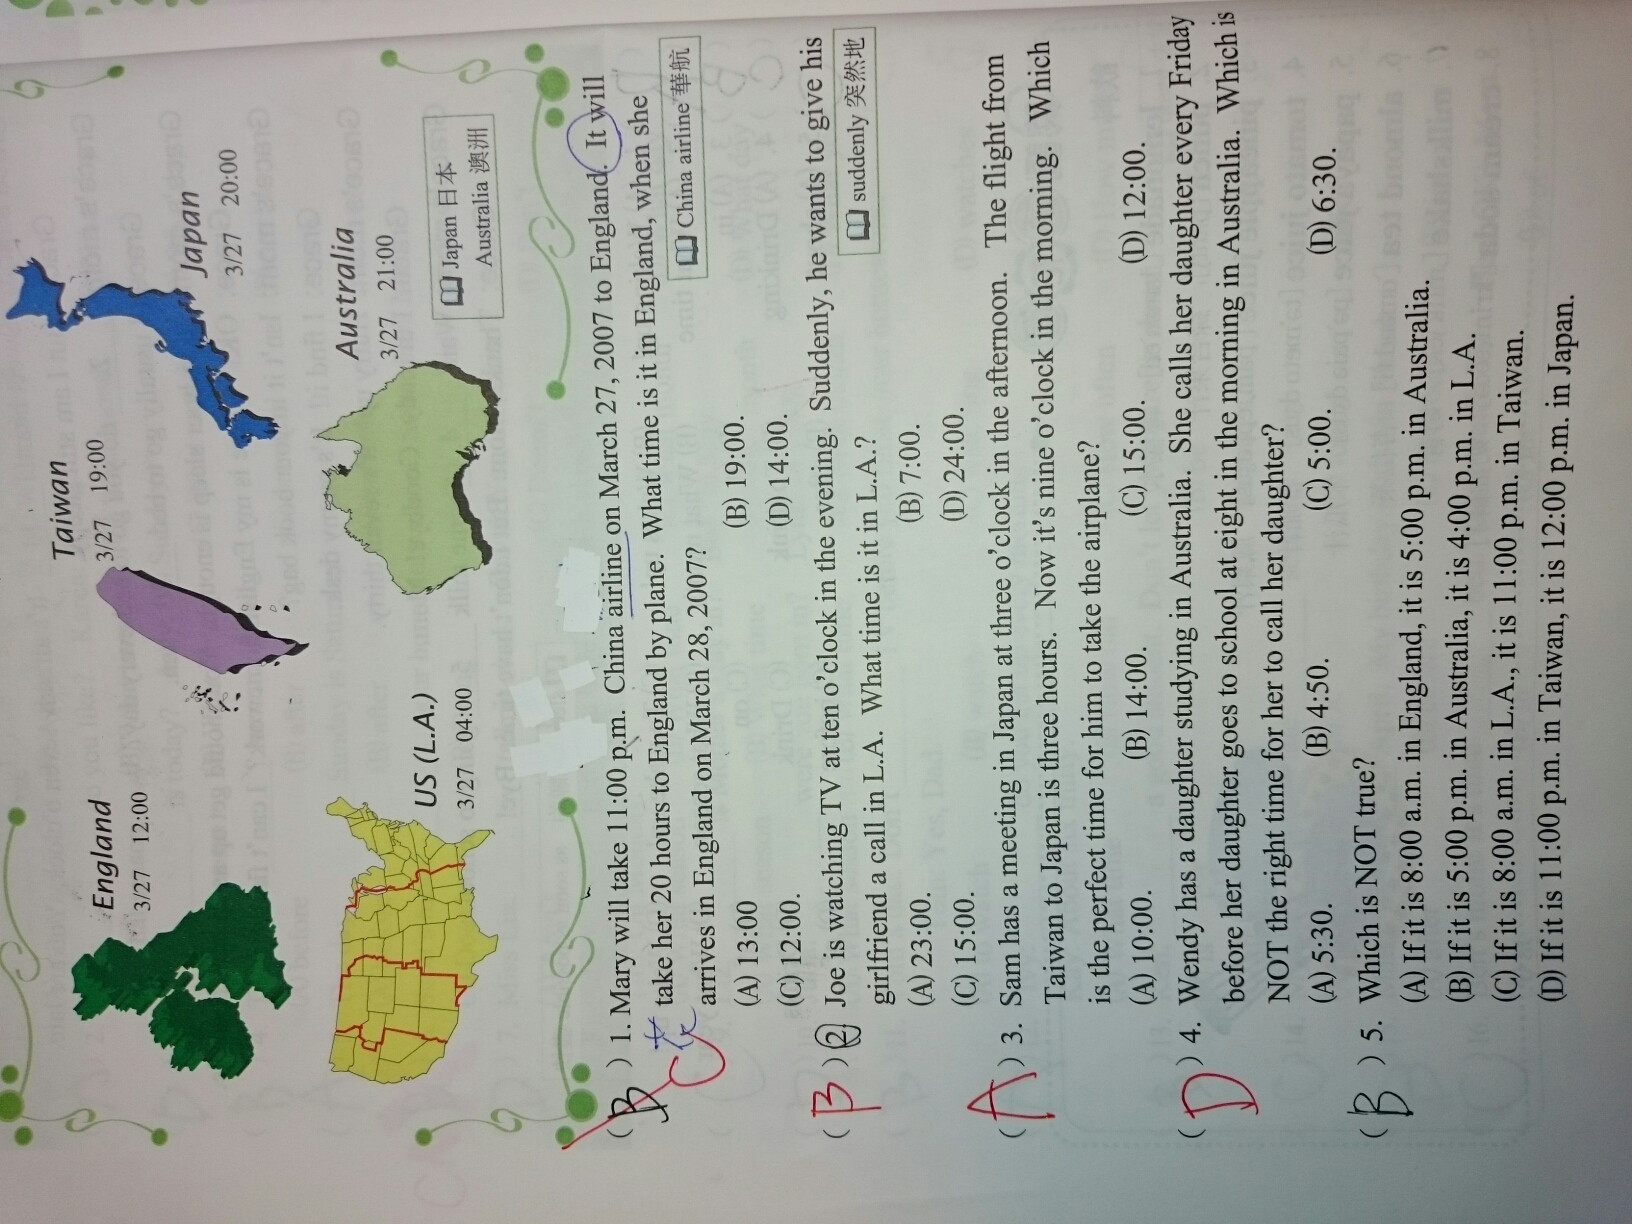 England
3/27 12:00
Taiwan
3/27 19:00
Japan
3/27 20:00
US (L.A.)
3/27 04:00
Australia
3/27 21:00
Japan 日本
Australia 澳洲
( B ) 1. Mary will take 11:00 p.m. China airline on March 27, 2007 to England. It will
C take her 20 hours to England by plane. What time is it in England, when she
arrives in England on March 28, 2007?
China airline 華航
(A) 13:00 (B) 19:00.
(C) 12:00. (D) 14:00.
( B ) 2. Joe is watching TV at ten o'clock in the evening. Suddenly, he wants to give his
girlfriend a call in L.A. What time is it in L.A.?
suddenly 突然地
(A) 23:00. (B) 7:00.
(C) 15:00. (D) 24:00.
( A ) 3. Sam has a meeting in Japan at three o'clock in the afternoon. The flight from
Taiwan to Japan is three hours. Now it's nine o'clock in the morning. Which
is the perfect time for him to take the airplane?
(A) 10:00. (B) 14:00. (C) 15:00. (D) 12:00.
( D ) 4. Wendy has a daughter studying in Australia. She calls her daughter every Friday
before her daughter goes to school at eight in the morning in Australia. Which is
NOT the right time for her to call her daughter?
(A) 5:30. (B) 4:50. (C) 5:00. (D) 6:30.
( B ) 5. Which is NOT true?
(A) If it is 8:00 a.m. in England, it is 5:00 p.m. in Australia.
(B) If it is 5:00 p.m. in Australia, it is 4:00 p.m. in L.A.
(C) If it is 8:00 a.m. in L.A., it is 11:00 p.m. in Taiwan.
(D) If it is 11:00 p.m. in Taiwan, it is 12:00 p.m. in Japan.